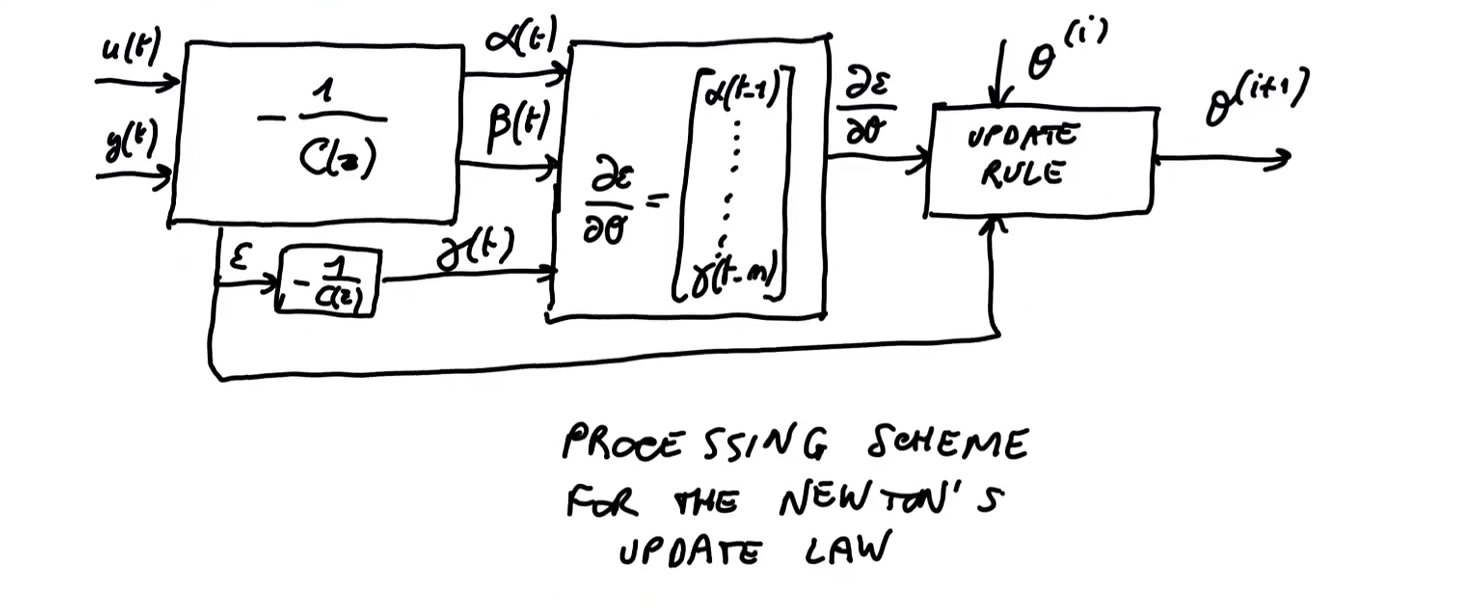 u(t)
y(t)
- 1 / C(z)
α(t)
β(t)
ε
- 1 / C(z)
γ(t)
∂ε/∂θ = [α(t-1) ⋮ γ(t-n)]
∂ε/∂θ
θ^(i)
UPDATE
RULE
θ^(i+1)
PROCESSING SCHEME
FOR THE NEWTON'S
UPDATE LAW